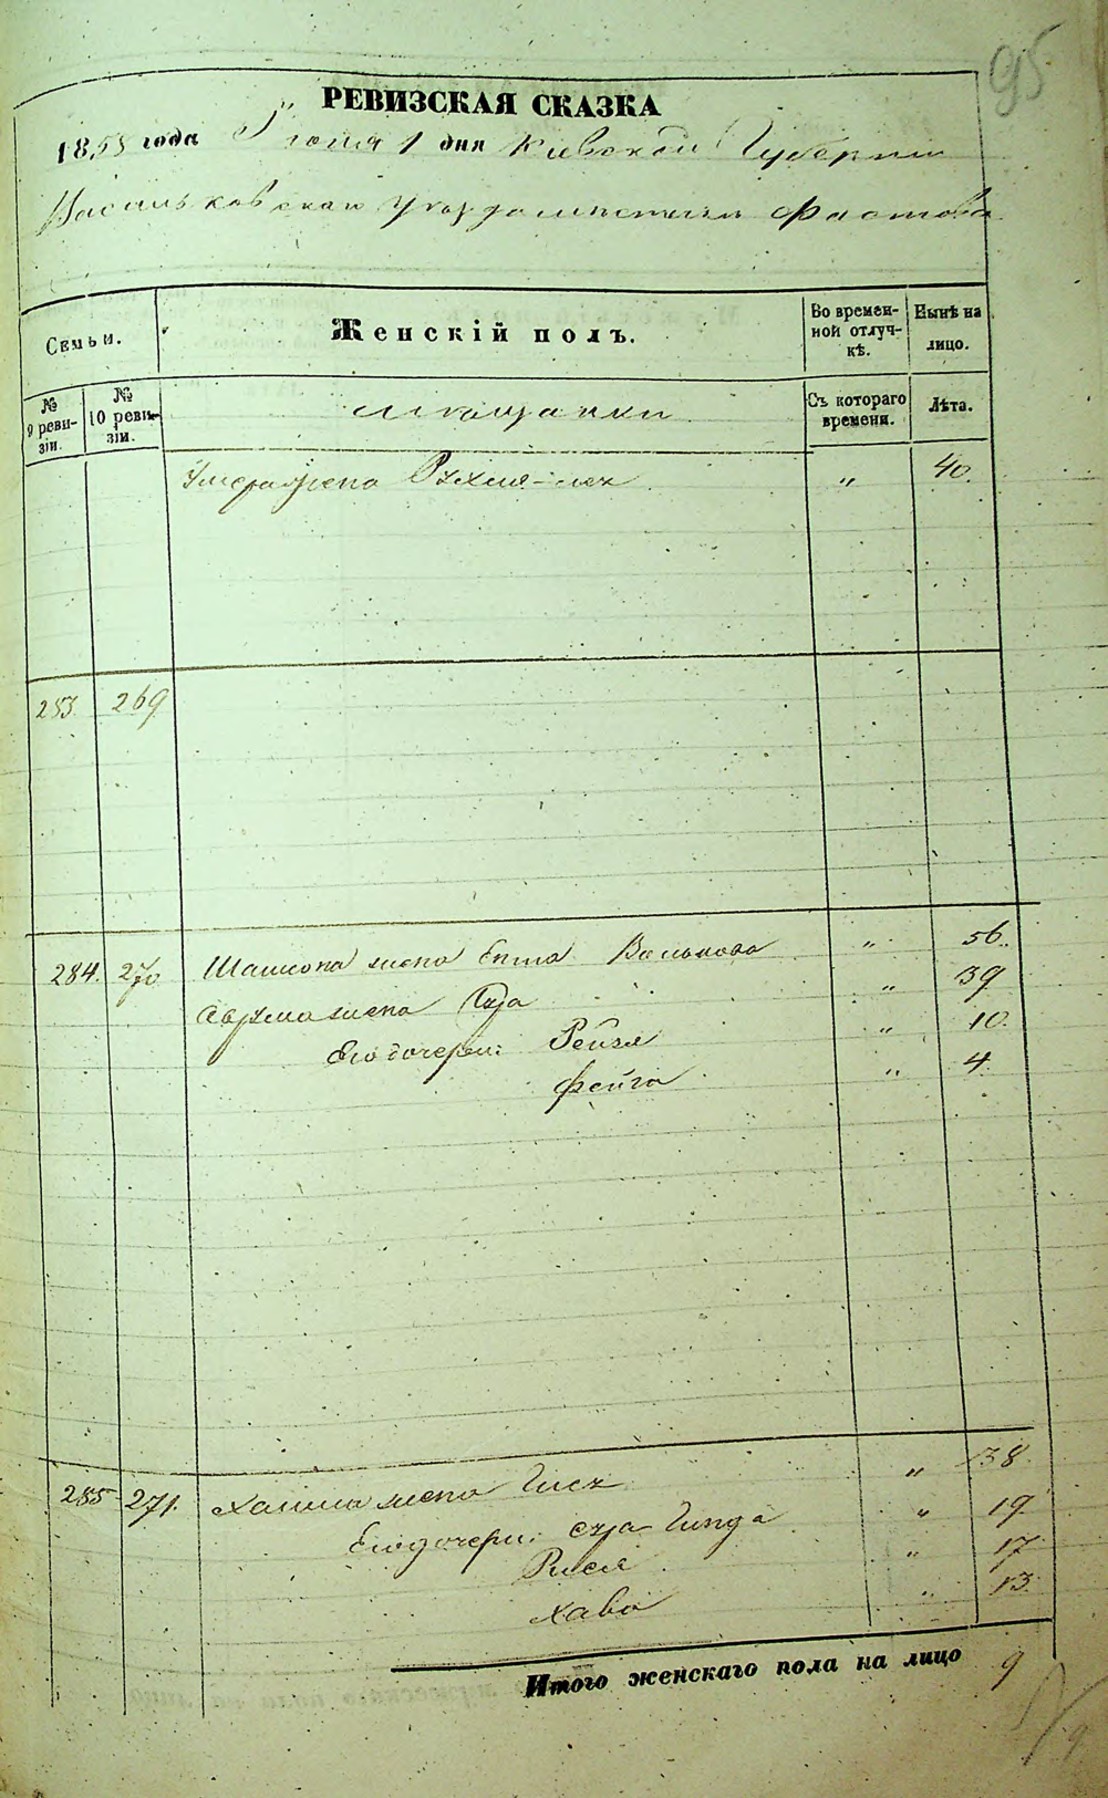 95
РЕВИЗСКАЯ СКАЗКА
1858 года Iюня 1 дня Кiевской Губернiи
Васильковскаго уезда местечка Фастова
Семьи.
Женскiй полъ.
Во времен-
ной отлуч-
кѣ.
Нынѣ на
лицо.
№
9 реви-
зiи.
№
10 реви-
зiи.
мещанки
Съ котораго
времени.
Лѣта.
жена Рухля- „ 40.
253. 269
284. 270 жена Волькова „ 56.
жена Сура „ 39
Его дочери: Рейзя „ 10.
Фейга „ 4.
285 271. Хаима жена „ 38.
Его дочери: Сура Гинда „ 19
Рися „ 17
Хава „ 13.
Итого женскаго пола на лицо 9
9